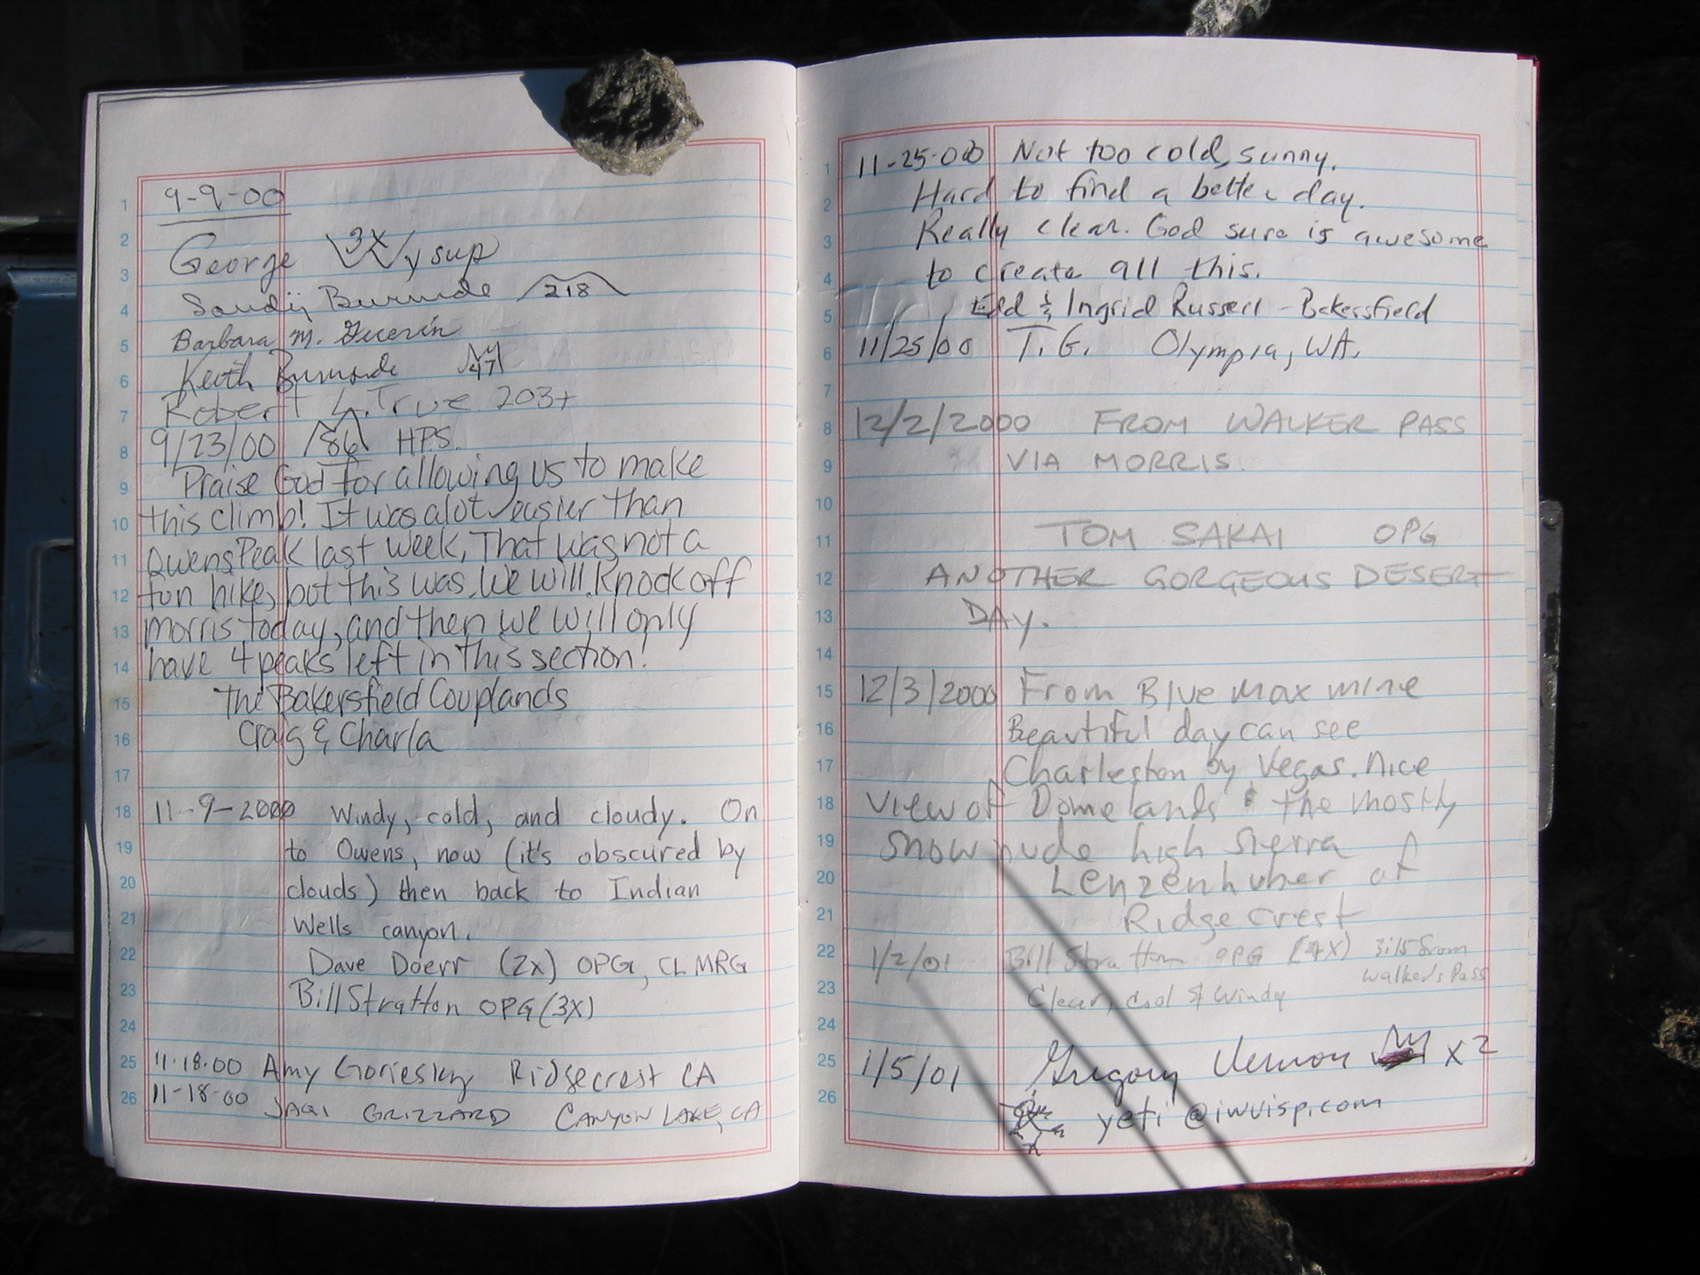 9-9-00
George Wysup 3X
Sandy Burnside 218
Barbara M. Guerin
Keith Burnside
Robert L. True 203+
9/23/00 86 HPS.
Praise God for allowing us to make
this climb! It was a lot easier than
Owens Peak last week, That was not a
fun hike, but this was. We will knock off
morris today, and then we will only
have 4 peaks left in this section!
The Bakersfield Couplands
Craig & Charla
11-9-2000 Windy, cold, and cloudy. On
to Owens, now (it's obscured by
clouds) then back to Indian
Wells canyon.
Dave Doerr (2x) OPG, CLMRG
Bill Stratton OPG (3X)
11-18-00 Amy Ridgecrest CA
11-18-00 JAQI GRIZZARD CANYON LAKE, CA
11-25-00 Not too cold, sunny.
Hard to find a better day.
Really clear. God sure is awesome
to create all this.
Edd & Ingrid Russell - Bakersfield
11/25/00 T.G. Olympia, WA.
12/2/2000 FROM WALKER PASS
VIA MORRIS.
TOM SAKAI OPG
ANOTHER GORGEOUS DESERT
DAY.
12/3/2000 From Blue Max mine
Beautiful day can see
Charleston by Vegas. Nice
view of Domelands & the mostly
snow nude high Sierra
Lenzenhuber of
Ridgecrest
1/2/01 Bill Stratton OPG (4X) from
Walker's Pass
Clear, cool & windy
1/5/01 Gregory Vernon X2
yeti@iwvisp.com
1
2
3
4
5
6
7
8
9
10
11
12
13
14
15
16
17
18
19
20
21
22
23
24
25
26
1
2
3
4
5
6
7
8
9
10
11
12
13
14
15
16
17
18
19
20
21
22
23
24
25
26